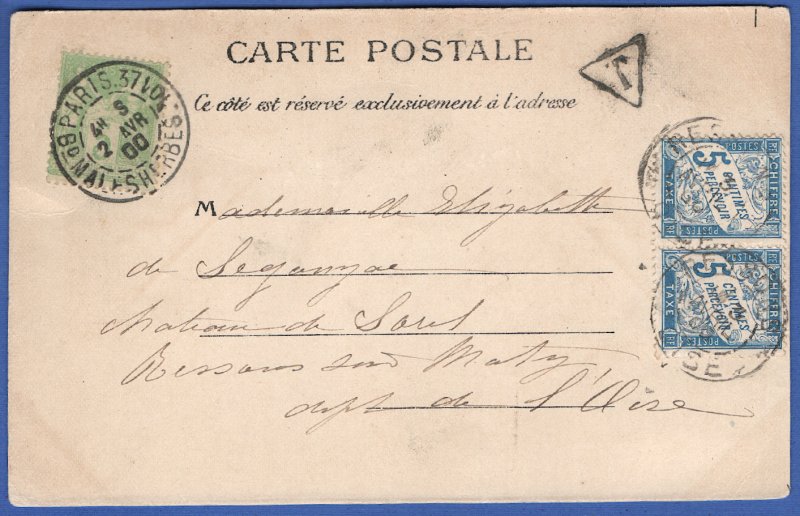 CARTE POSTALE
T
Ce côté est réservé exclusivement à l'adresse
PARIS.37
Bd MALESHERBES
2 AVR 00
5 CENTIMES
À PERCEVOIR
CHIFFRE TAXE
POSTES
5 CENTIMES
À PERCEVOIR
CHIFFRE TAXE
POSTES
Mademoiselle Elizabeth
de Segonzac
chateau de Sorel
Ressons sur Matz
dept de l'Oise